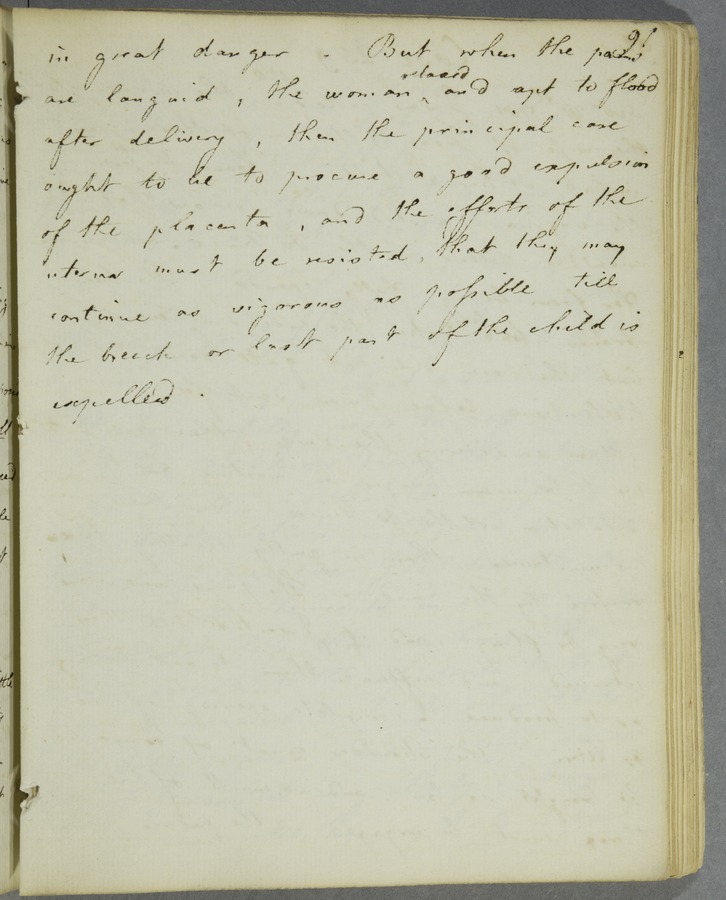 91
in great danger - But when the pains
are languid, the woman ^ relaxed and apt to flood
after delivery, then the principal care
ought to be to procure a good expulsion
of the placenta, and the efforts of the
uterus must be resisted, that they may
continue as vigorous as possible till
the breech or last part of the child is
expelled.